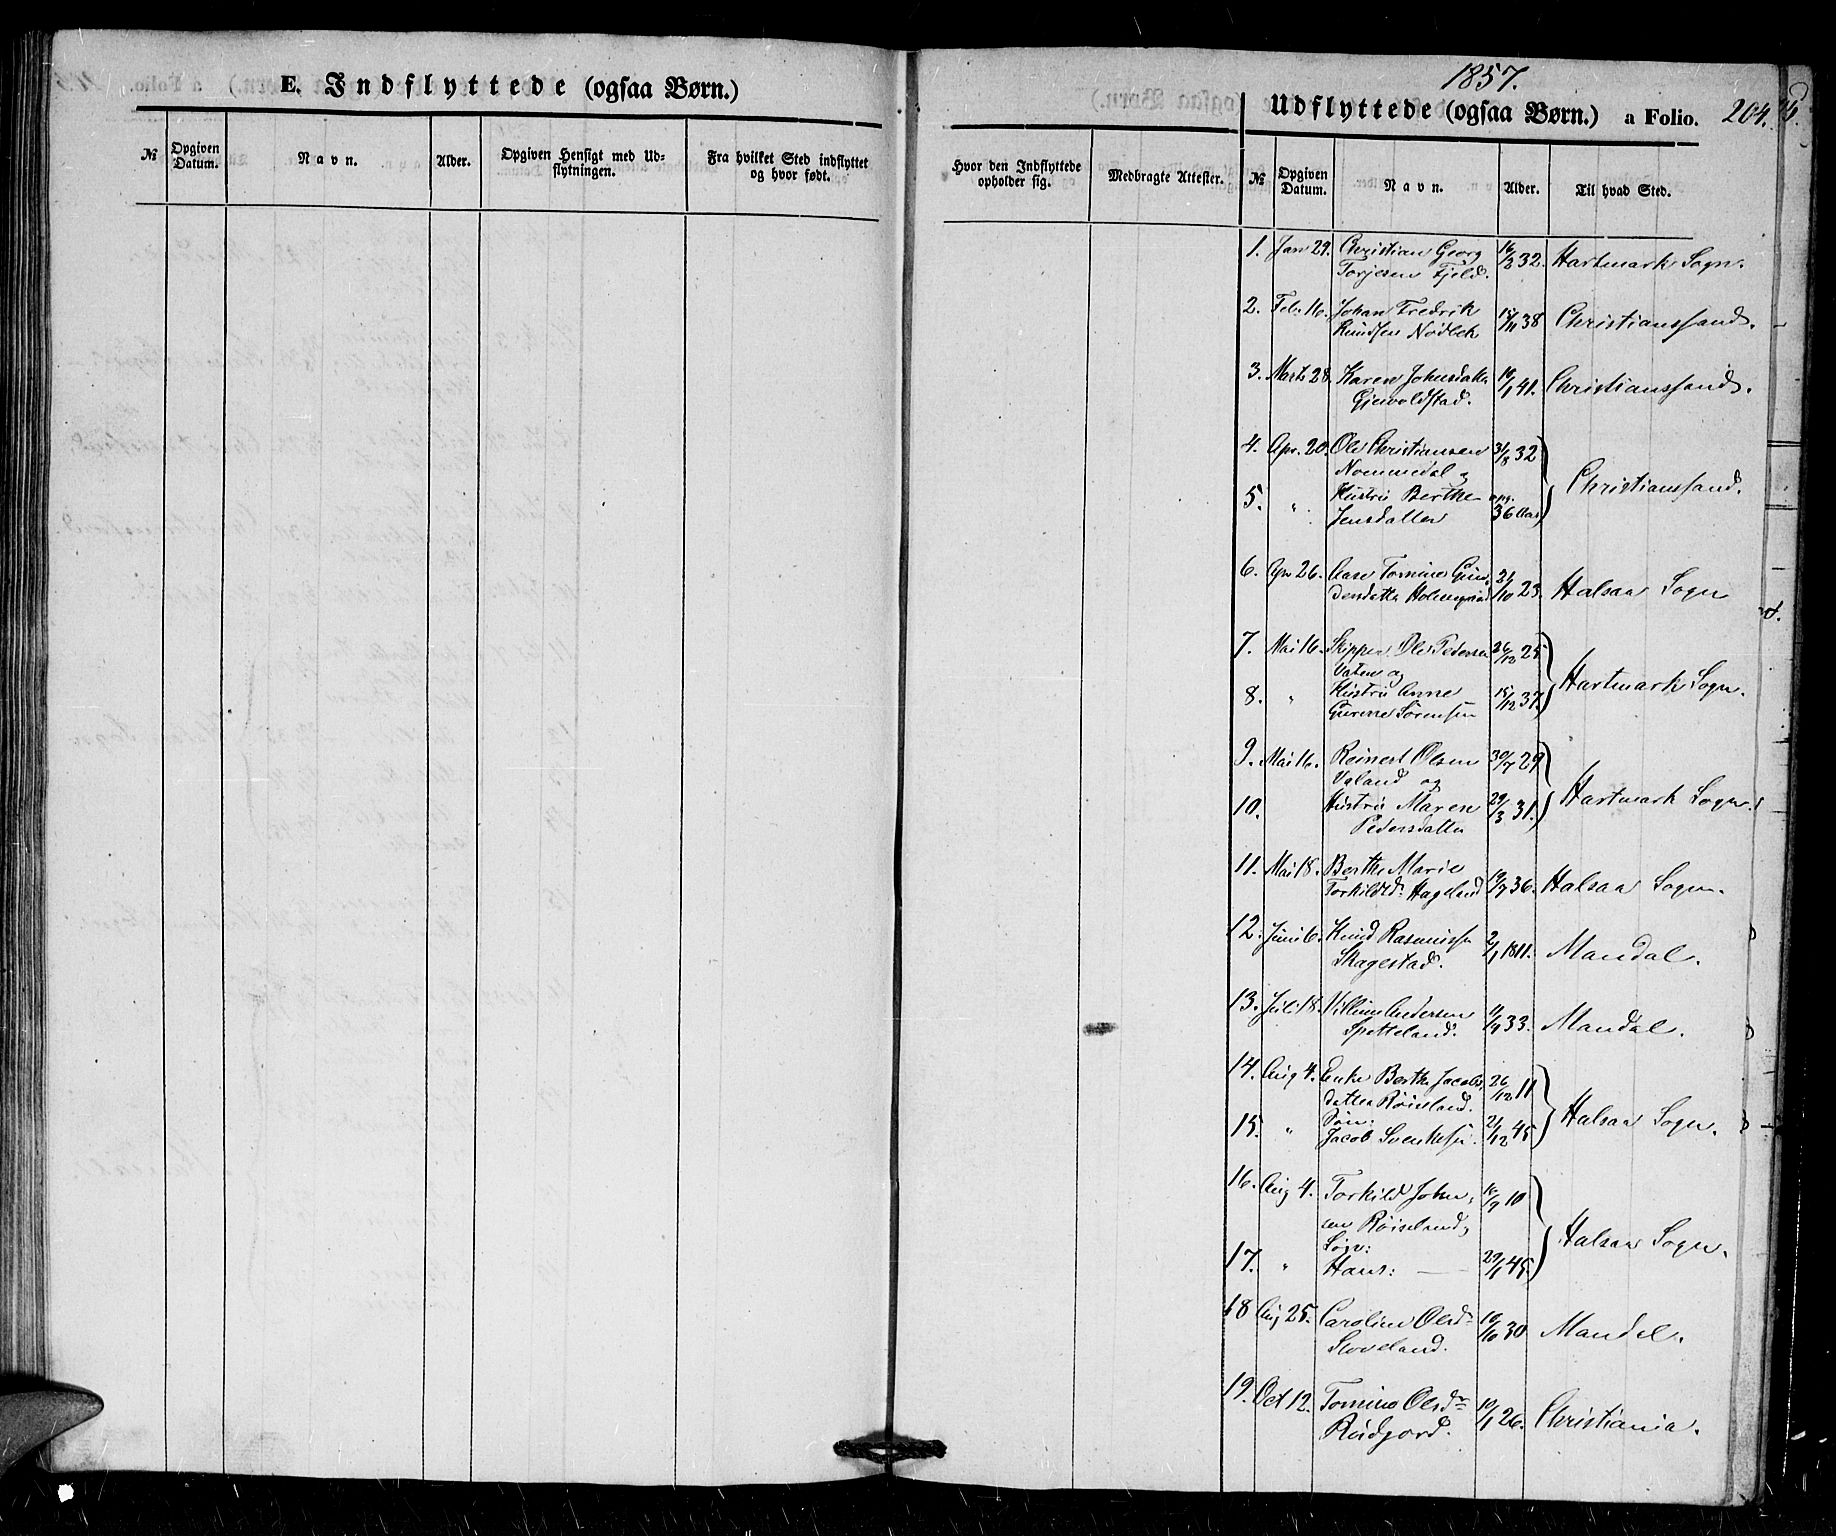 E. Indflyttede (ogsaa Børn.)
№
Opgiven Datum.
Navn.
Alder.
Opgiven Hensigt med Udflytningen.
Fra hvilket Sted indflyttet og hvor født.
Hvor den Indflyttede opholder sig.
Medbragte Attester.
1857.
Udflyttede (ogsaa Børn.) a Folio. 204.
№
Opgiven Datum.
Navn.
Alder.
Til hvad Sted.
1. Jan 29. Christian Georg 16/3 32. Hartmark Sogn.
Torjesen Fjeld.
2. Feb. 16. Johan Fredrik 15/11 38 Christianssand.
Knudsen Nodbek
3. Marts 28. Karen Johnsdatter 19/1 41. Christianssand.
Gjervoldstad.
4. Apr. 20. Ole Christiansen 31/8 32 Christianssand.
Nommedal og
5. " Hustru Berthe opg. 36 Aar
Jensdatter
6. Apr 26. Aase Tomine Gun- 21/10 23. Halsaa Sogn
densdatter
7. Mai 16. Skipper Ole Pedersen 26/12 25 Hartmark Sogn.
Vatne og
8. " Hustru Anne 15/12 37.
Gurine Sørensen
9. Mai 16. Reinert Olsen 30/7 29 Hartmark Sogn.
Valand og
10. Hustru Maren 29/3 31.
Pedersdatter
11. Mai 18. Berthe Marie 19/7 36. Halsaa Sogn.
Torkildsd: Hageland
12. Juni 6. Knud Rasmussen 2/1 1811. Mandal.
Skagestad.
13. Juli 18. Villum Andersen 11/9 33. Mandal.
Spetteland.
14. Aug 4. Enke Berthe Jacobs- 26/12 11 Halsaa Sogn.
datter Røiseland.
Søn:
15. " Jacob Svenksen. 21/12 45
16. Aug 4. Torkild John- 16/9 10 Halsaa Sogn.
sen Røiseland,
Søn:
17. " Hans: — 29/1 45.
18 Aug 25. Caroline Olsd: 19/10 30 Mandal.
Stoveland.
19. Oct 12. Tomine Olsd: 19/1 26. Christiania.
Rødgord.